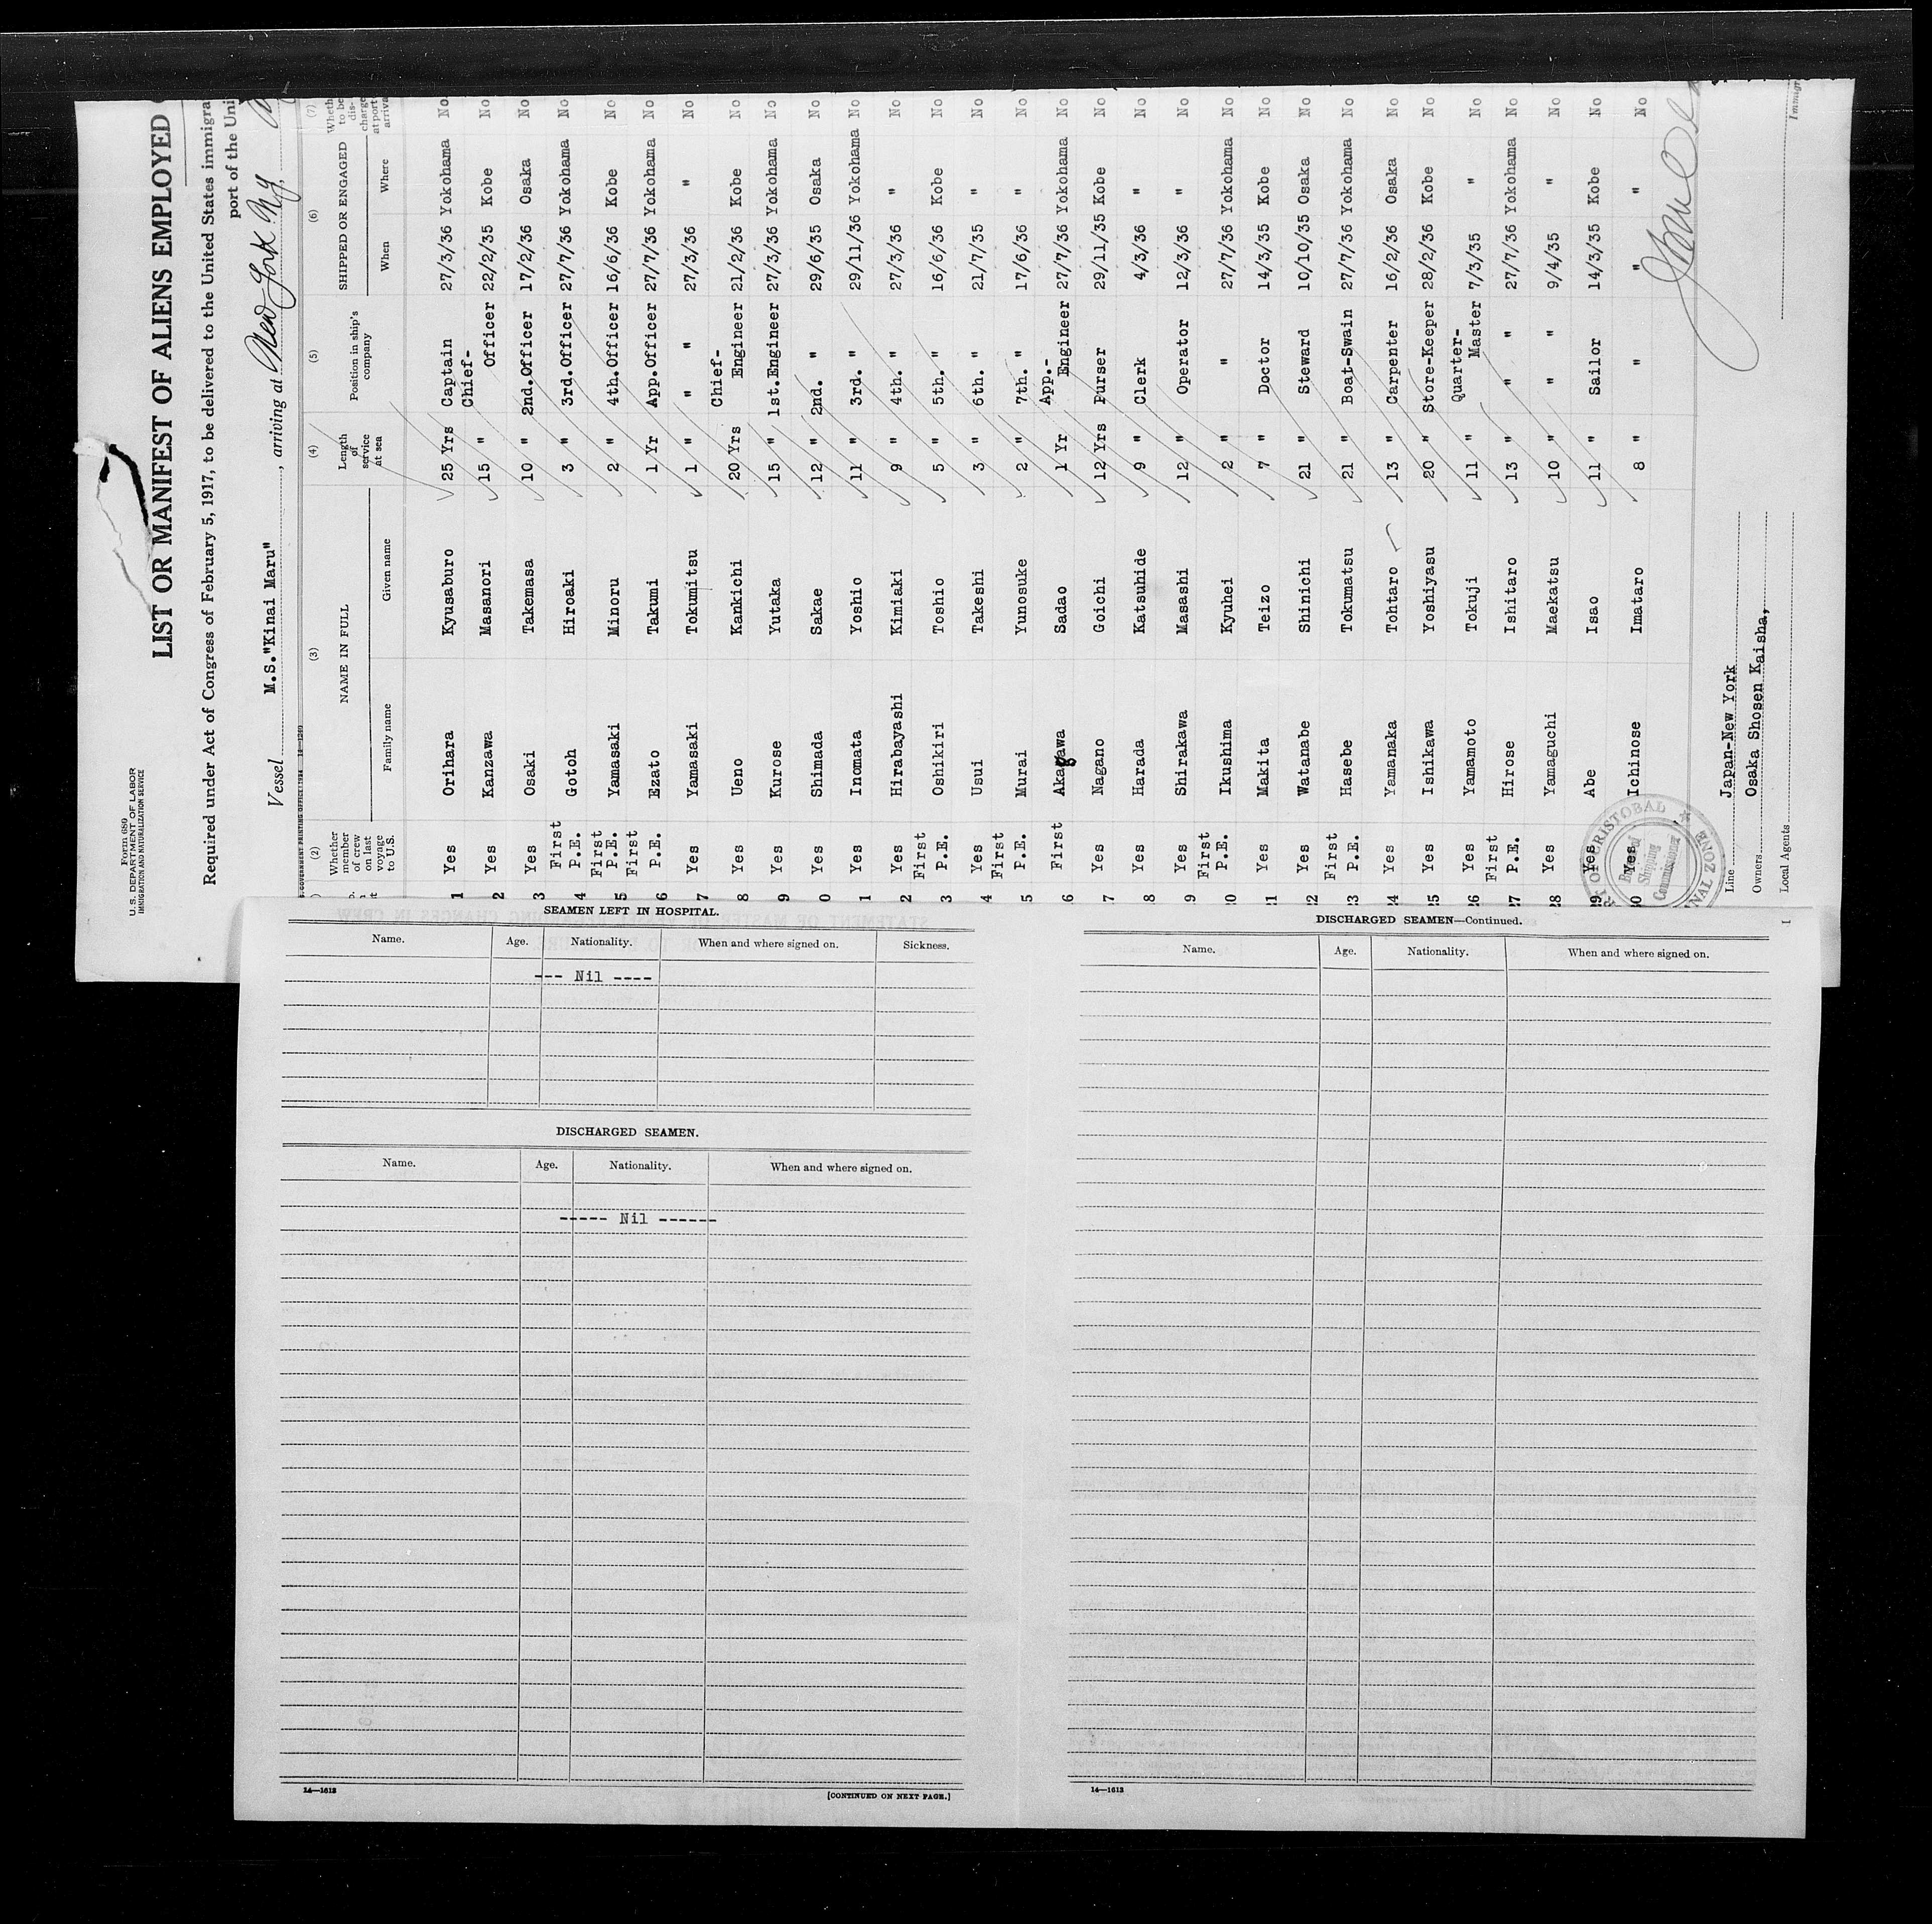 Form 680
U. S. DEPARTMENT OF LABOR
IMMIGRATION AND NATURALIZATION SERVICE
LIST OR MANIFEST OF ALIENS EMPLOYED
Required under Act of Congress of February 5, 1917, to be delivered to the United States immigra
port of the Uni
Vessel M.S."Kinai Maru", arriving at New York N.Y.
U.S. GOVERNMENT PRINTING OFFICE: 1934 14-1240
(2) (3) (4) (5) (6) (7)
Whether member of crew on last voyage to U.S. NAME IN FULL Length of service at sea Position in ship's company SHIPPED OR ENGAGED Wheth to be dis- charge at port arriva
Family name Given name When Where
1 Yes Orihara Kyusaburo 25 Yrs Captain 27/3/36 Yokohama No
2 Yes Kanzawa Masanori 15 " Chief-Officer 22/2/35 Kobe No
3 Yes Osaki Takemasa 10 " 2nd.Officer 17/2/36 Osaka No
4 First P.E. Gotoh Hiroaki 3 " 3rd.Officer 27/7/36 Yokohama No
5 First P.E. Yamasaki Minoru 2 " 4th.Officer 16/6/36 Kobe No
6 First P.E. Ezato Takumi 1 Yr App.Officer 27/7/36 Yokohama No
7 Yes Yamasaki Tokumitsu 1 " " " 27/3/36 " No
8 Yes Ueno Kankichi 20 Yrs Chief-Engineer 21/2/36 Kobe No
9 Yes Kurose Yutaka 15 " 1st.Engineer 27/3/36 Yokohama No
0 Yes Shimada Sakae 12 " 2nd. " 29/6/35 Osaka No
1 Yes Inomata Yoshio 11 " 3rd. " 29/11/36 Yokohama No
2 Yes Hirabayashi Kimiaki 9 " 4th. " 27/3/36 " No
3 First P.E. Oshikiri Toshio 5 " 5th. " 16/6/36 Kobe No
4 Yes Usui Takeshi 3 " 6th. " 21/7/35 " No
5 First P.E. Murai Yunosuke 2 " 7th. " 17/6/36 " No
6 First Akagawa Sadao 1 Yr App.-Engineer 27/7/36 Yokohama No
7 Yes Nagano Goichi 12 Yrs Purser 29/11/35 Kobe No
8 Yes Harada Katsuhide 9 " Clerk 4/3/36 " No
9 Yes Shirakawa Masashi 12 " Operator 12/3/36 " No
20 First P.E. Ikushima Kyuhei 2 " " 27/7/36 Yokohama No
21 Yes Makita Teizo 7 " Doctor 14/3/35 Kobe No
22 Yes Watanabe Shinichi 21 " Steward 10/10/35 Osaka No
23 First P.E. Hasebe Tokumatsu 21 " Boat-Swain 27/7/36 Yokohama No
24 Yes Yamanaka Tohtaro 13 " Carpenter 16/2/36 Osaka No
25 Yes Ishikawa Yoshiyasu 20 " Store-Keeper 28/2/36 Kobe No
26 Yes Yamamoto Tokuji 11 " Quarter-Master 7/3/35 " No
27 First P.E. Hirose Ishitaro 13 " " " 27/7/36 Yokohama No
28 Yes Yamaguchi Maekatsu 10 " " " 9/4/35 " No
29 Yes Abe Isao 11 " Sailor 14/3/35 Kobe No
30 Yes Ichinose Imataro 8 " " " " No
CRISTOBAL
Shipping
Commissioner
NAL ZONE
Line Japan-New York
Owners Osaka Shosen Kaisha,
Local Agents
Immigr
SEAMEN LEFT IN HOSPITAL.
Name. Age. Nationality. When and where signed on. Sickness.
--- Nil ----
DISCHARGED SEAMEN.
Name. Age. Nationality. When and where signed on.
----- Nil ------
14—1613
[CONTINUED ON NEXT PAGE.]
DISCHARGED SEAMEN—Continued.
Name. Age. Nationality. When and where signed on.
14—1613